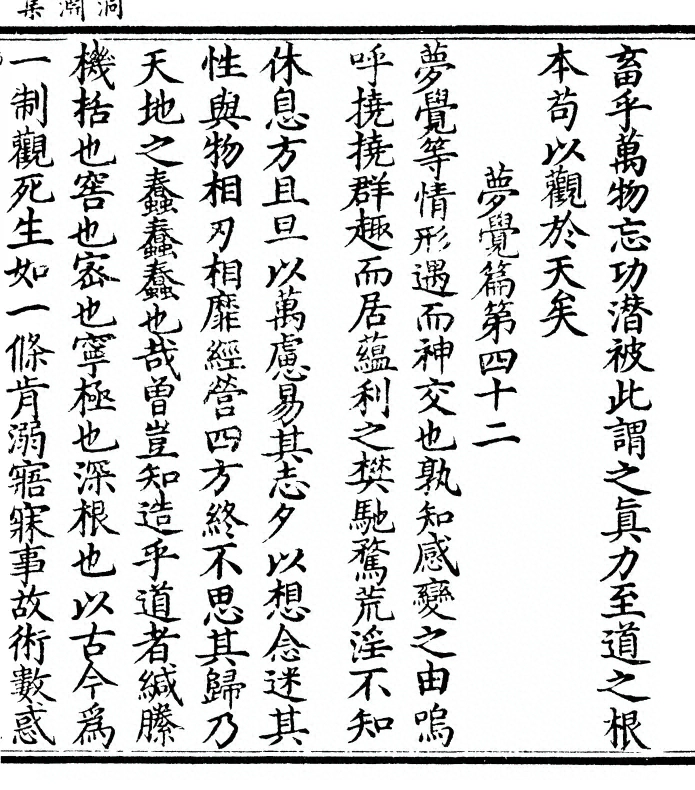 洞淵集
畜乎萬物忘功潛被此謂之眞力至道之根
本苟以觀於天矣
夢覺篇第四十二
夢覺等情形遇而神交也孰知感變之由嗚
呼撓撓群趣而居蘊利之樊馳騖荒淫不知
休息方且旦以萬慮易其志夕以想念迷其
性與物相刃相靡經營四方終不思其歸乃
天地之蠢蠢蠢也哉曽豈知造乎道者緘縢
機括也窖也窓也寧極也深根也以古今爲
一制觀死生如一條肯溺寤寐事故術數惑